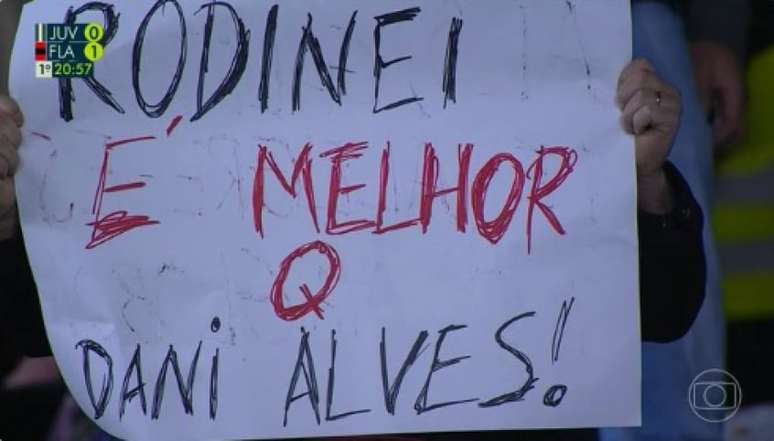 JUV 0
FLA 1
1º 20:57
RODINEI
É MELHOR
Q
DANI ALVES!